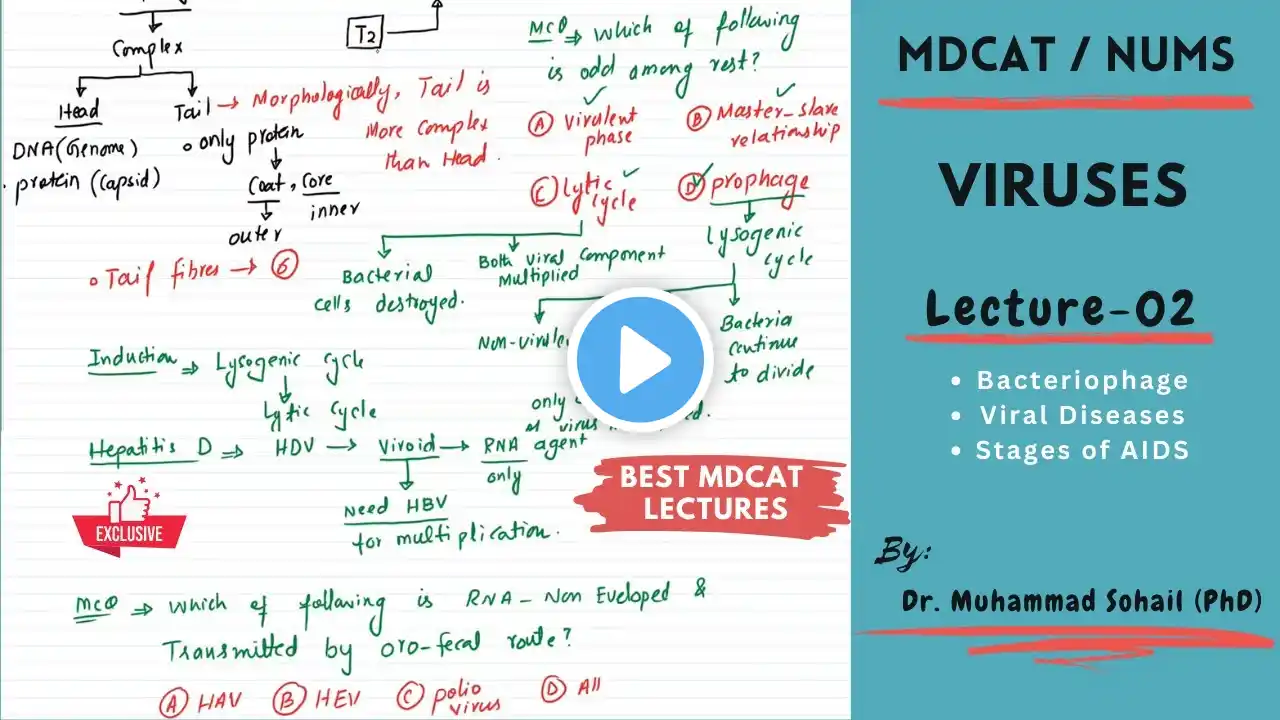 Complex
Head
DNA (Genome)
protein (Capsid)
Tail → Morphologically, Tail is
More Complex
than Head.
only protein
Coat, Core
inner
outer
Tail fibres → 6
T2
MCQ ⇒ Which of following
is odd among rest?
A Virulent
phase
B Master-slave
relationship
C Lytic
cycle
D prophage
Bacterial
cells destroyed.
Both viral Component
Multiplied
Lysogenic
cycle
Bacteria
continue
to divide
only
of virus
Induction ⇒ Lysogenic cycle
Lytic cycle
Hepatitis D ⇒ HDV → Viroid → RNA agent
only
Need HBV
for multiplication.
EXCLUSIVE
BEST MDCAT
LECTURES
MCQ ⇒ Which of following is RNA-Non Eveloped &
Transmitted by oro-fecal route?
A HAV B HEV C polio
virus D All
MDCAT / NUMS
VIRUSES
Lecture-02
• Bacteriophage
• Viral Diseases
• Stages of AIDS
By:
Dr. Muhammad Sohail (PhD)